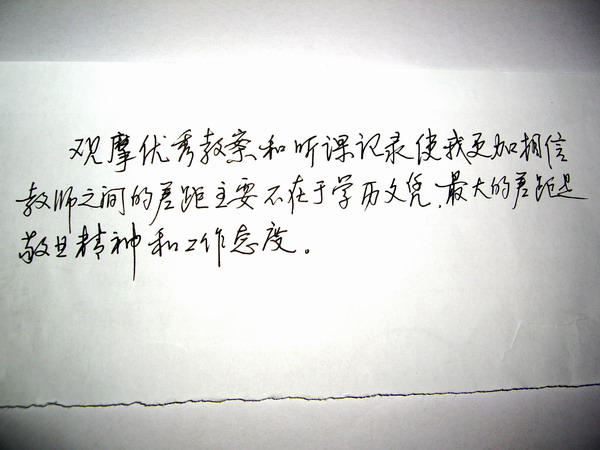 观摩优秀教案和听课记录使我更加相信
教师之间的差距主要不在于学历文凭，最大的差距是
敬业精神和工作态度。